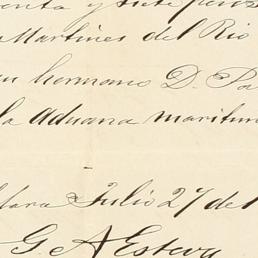 enta y siete pesos
Martines del Rio
su hermano D. Pa
la aduana maritim
lara Julio 27 de 1
G. A Esteva